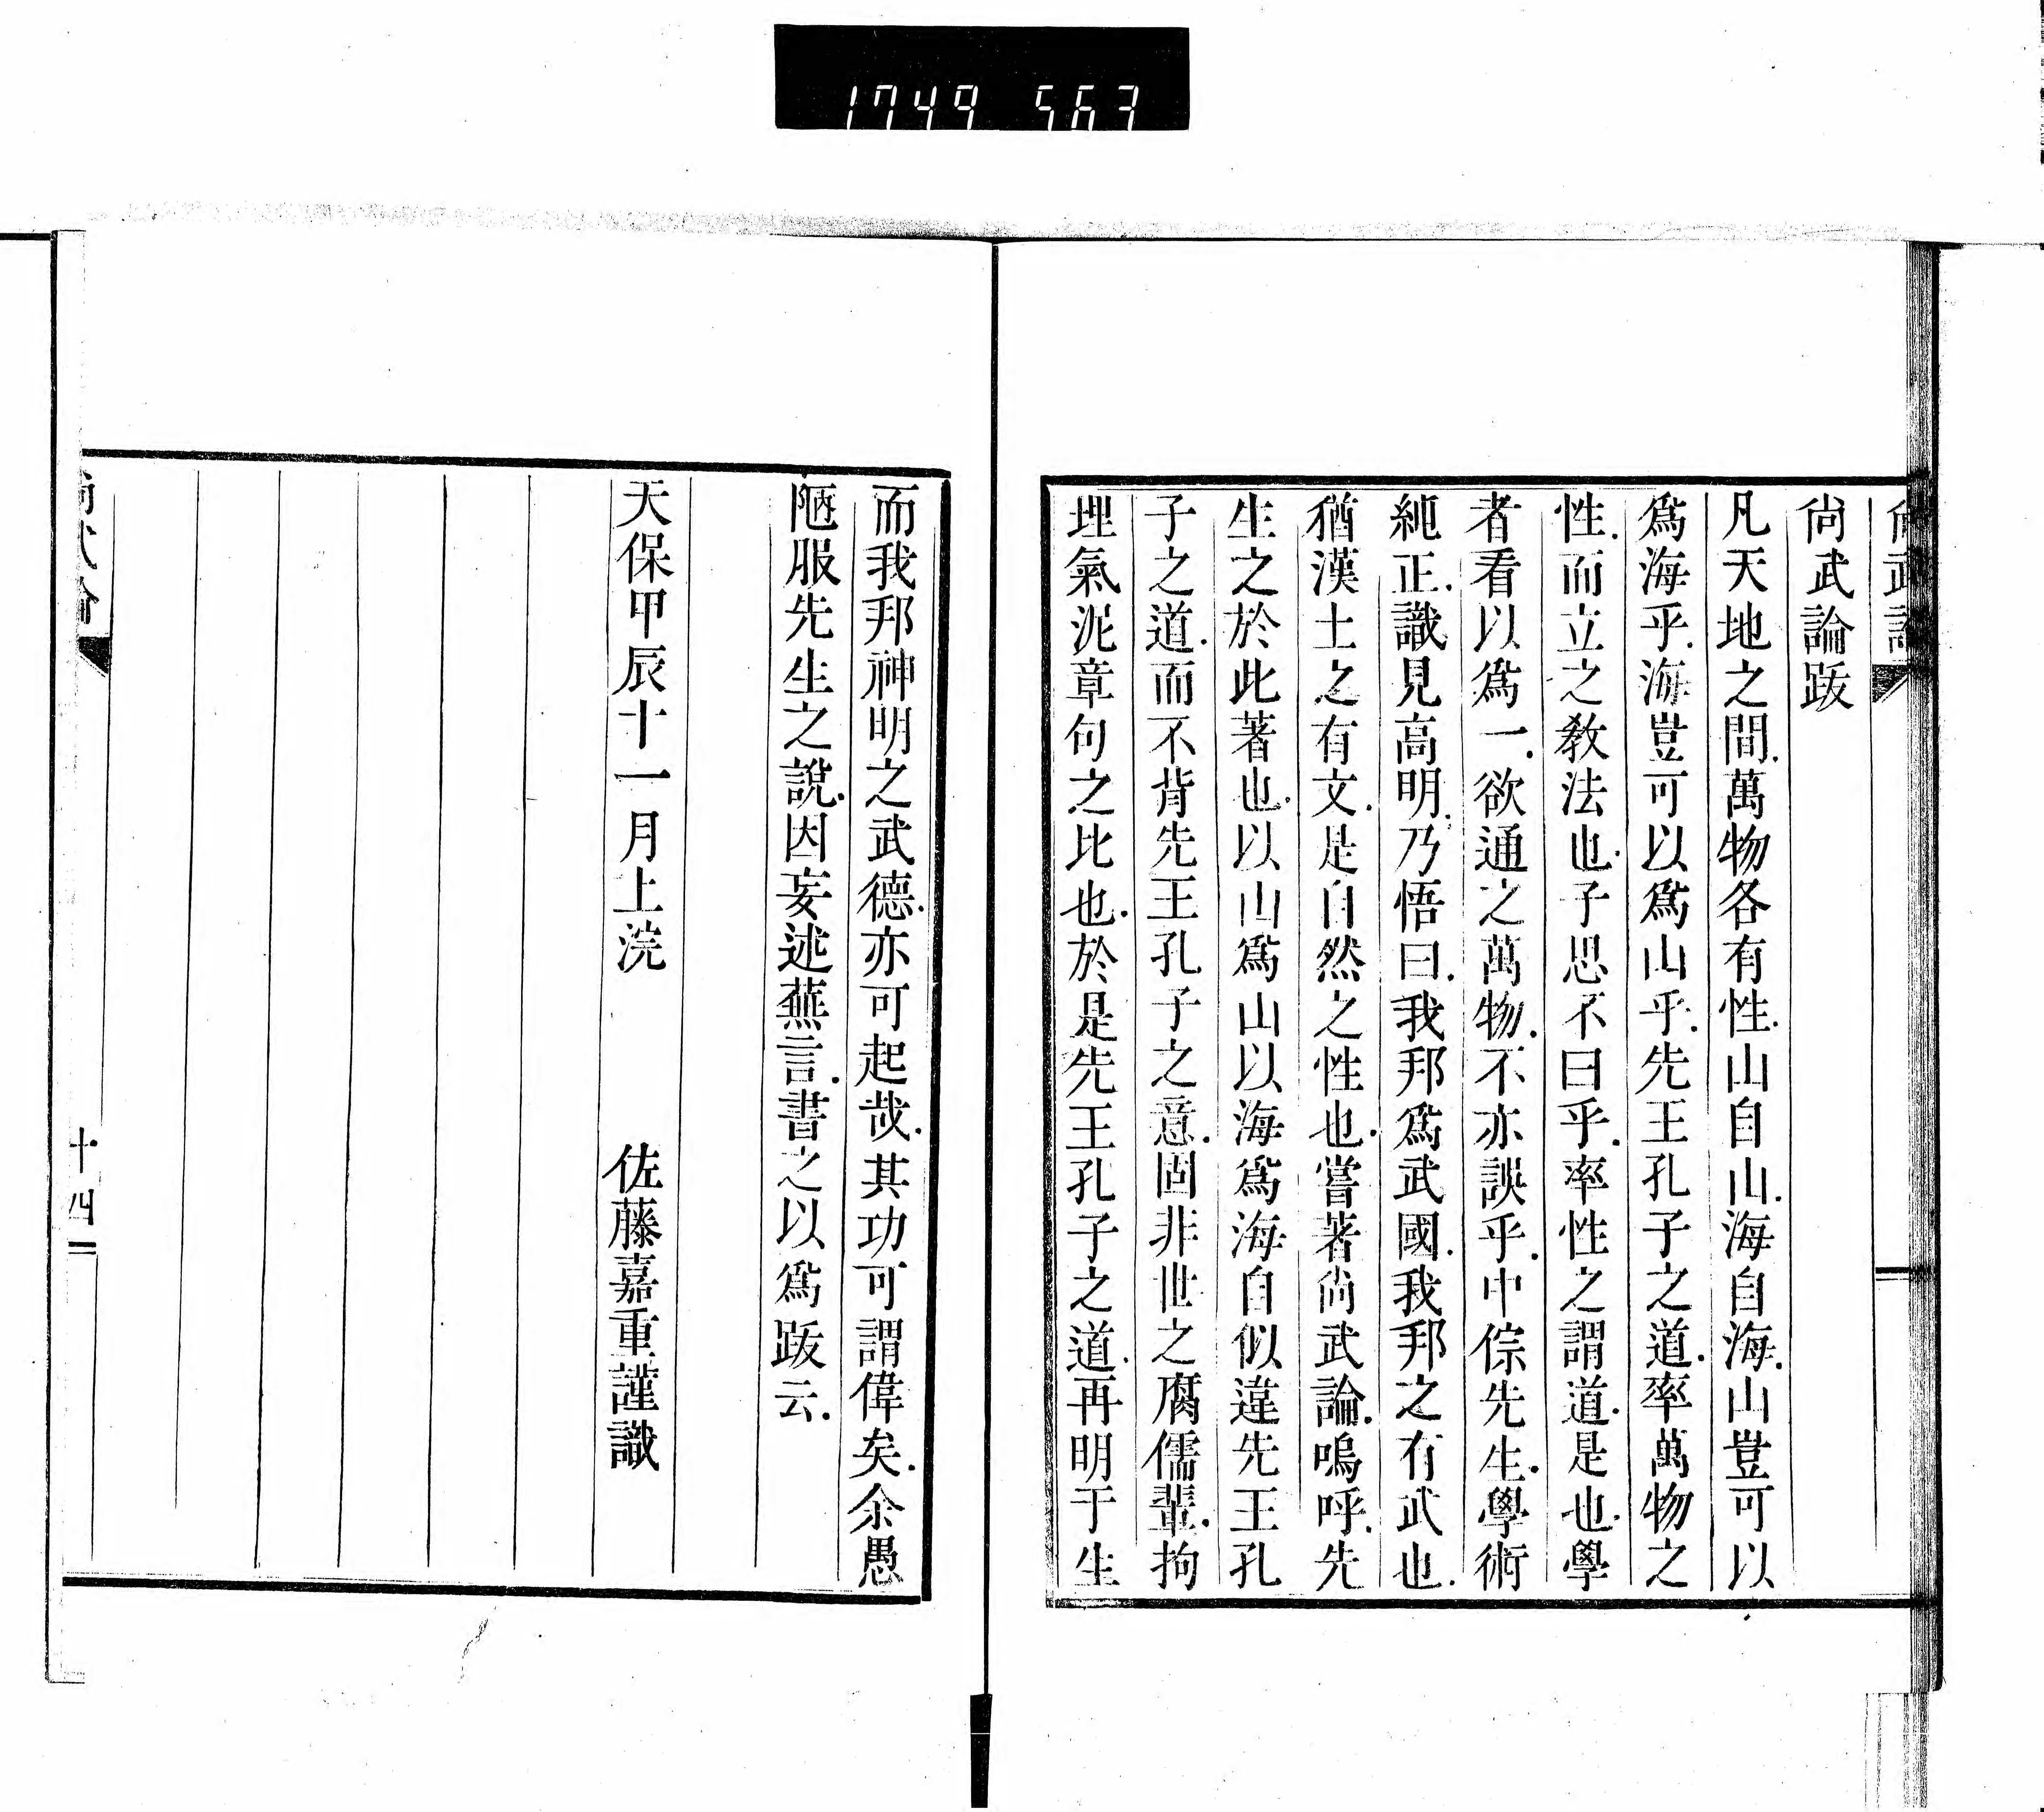 1749 563
尙武論
尙武論跋
凡天地之間.萬物各有性.山自山.海自海.山豈可以
爲海乎.海豈可以爲山乎.先王孔子之道.率萬物之
性.而立之教法也.子思不曰乎.率性之謂道.是也.學
者看以爲一.欲通之萬物.不亦誤乎.中倧先生.學術
純正.識見高明.乃悟曰.我邦爲武國.我邦之有武也.
猶漢土之有文.是自然之性也.嘗著尙武論.嗚呼.先
生之於此著也.以山爲山以海爲海自似違先王孔
子之道.而不背先王孔子之意.固非世之腐儒輩.拘
埋氣泥章句之比也.於是先王孔子之道.再明于生
而我邦神明之武德.亦可起哉.其功可謂偉矣.余愚
陋服先生之說.因妄述蕪言.書之以爲跋云.
天保甲辰十一月上浣　佐藤嘉重謹識
尙武論
十四